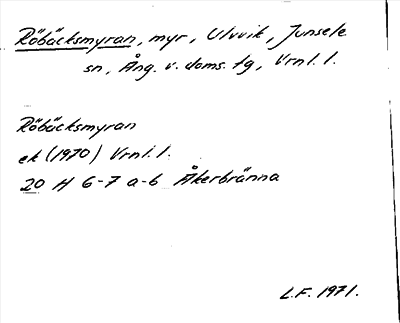 Röbäcksmyran, myr, Ulvvik, Junsele
sn, Ång. v. doms. tg, Vrnl. l.
Röbäcksmyran
ek (1970) Vrnl. l.
20 H 6-7 a-b Åkerbränna
L.F. 1971.